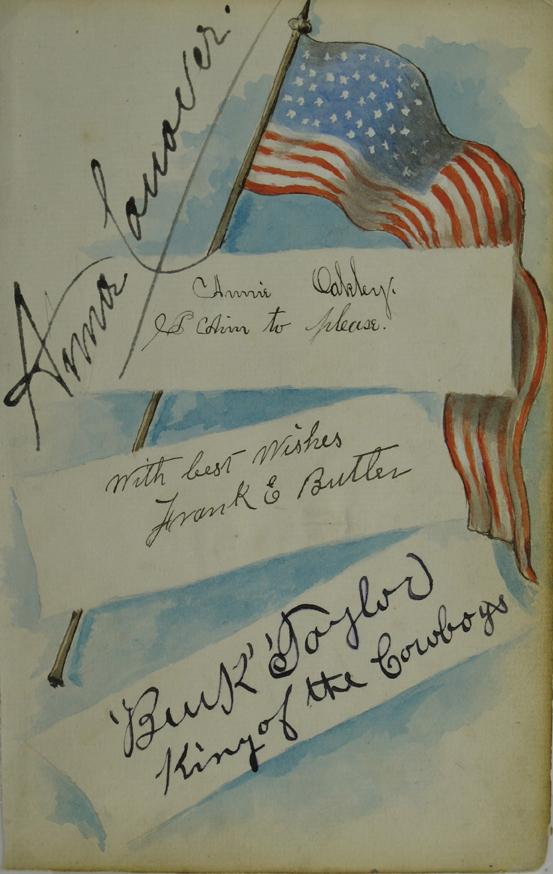 Annie Oakley.
I Aim to please.
With best Wishes
Frank E Butler
'Buck' Taylor
King of the Cowboys